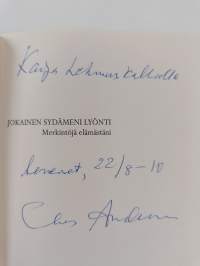 Kaija Lehmuskalliolle
JOKAINEN SYDÄMENI LYÖNTI
Merkintöjä elämästäni
22/8-10
Claes Andersson